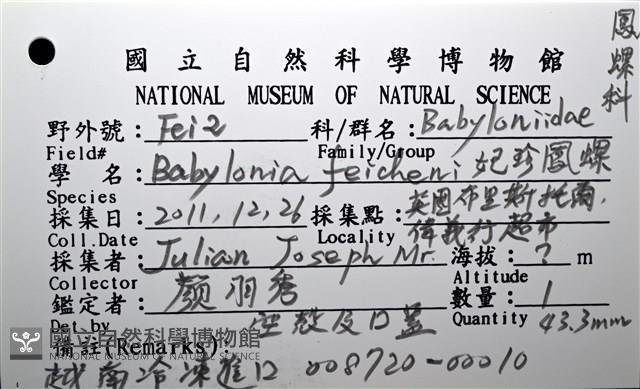 鳳螺科
國立自然科學博物館
NATIONAL MUSEUM OF NATURAL SCIENCE
野外號：Fei2 科/群名：Babyloniidae
Field# Family/Group
學 名：Babylonia feicheni 妃珍鳳螺
Species 英國布里斯托爾，
採集日：2011,12,26 採集點：偉義行超市
Coll.Date Locality
採集者：Julian Joseph Mr. 海拔：? m
Collector Altitude
鑑定者：顏羽秀 數量：1
Det by 空殼及口蓋 Quantity 43.3mm
國立自然科學博物館
NATIONAL MUSEUM OF NATURAL SCIENCE
備註(Remarks)：
越南冷凍進口 008720-00010